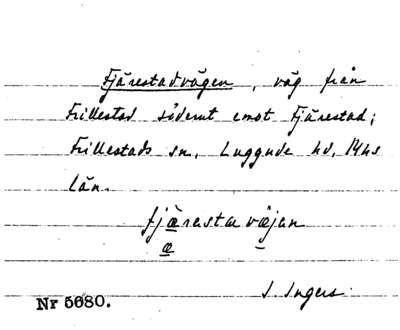 Fjärestadvägen, väg från
Frillestad söderut emot Fjärestad;
Frillestads sn, Luggude hd, Mhs
län.
fjärestavæjan
æ
I. Ingers.
Nr 5680.